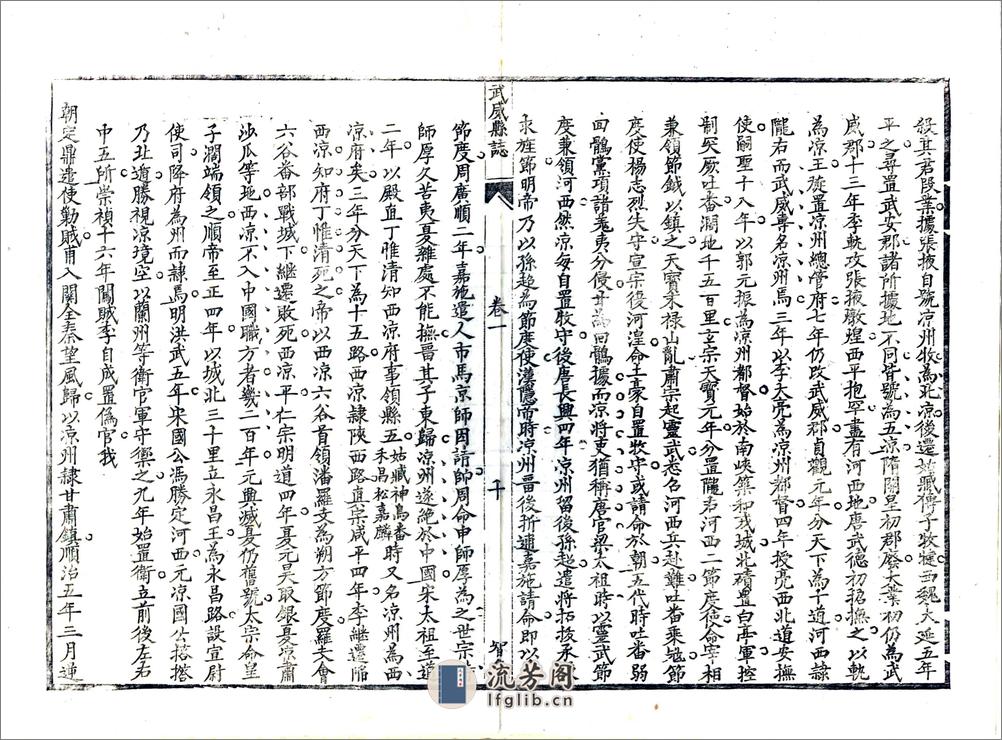 殺其君段業據張掖自號凉州牧為北凉後遷姑臧傳子牧犍西魏大延五年
平之尋置武安郡諸所據地不同皆號為五凉隋開皇初郡廢大業初仍為武
威郡十三年李軌攻張掖燉煌西平抱罕盡有河西地唐武德初招撫之以軌
為凉王旋置凉州總管府七年仍改武威郡貞觀元年分天下為十道河西隸
隴右而武威專名凉州焉三年以李大亮為凉州都督四年授亮西北道安撫
使嗣聖十八年以郭元振為凉州都督始於南峽築和戎城北磧置白亭軍控
制突厥吐番濶地千五百里玄宗天寶元年分置隴右河西二節度使命宰相
兼領節鉞以鎮之天寶末祿山亂肅宗起靈武悉召河西兵赴難吐番乘虛節
度使楊志烈失守宣宗後河湟命土豪自置牧守或請命於朝五代時吐番弱
回鶻黨項諸羗夷分侵廿為回鶻據而凉將吏猶稱唐官梁太祖時以靈武節
度兼領河西然凉每自置牧守後唐長興四年凉州留後孫超遣將拓拔承
求旌節明帝乃以孫超為節度使漢隱帝時凉州畱後折逋嘉施請命即以
武威縣誌
卷一
十
智
節度周廣順二年嘉施遣人市馬京師因請師周命申師厚為之世宗
師厚久苦夷戞雜處不能撫畱其子東歸凉州遂絕於中國宋太祖至道
二年以殿直丁惟清知西凉府事領縣五姑臧神鳥番禾昌松嘉麟時又名凉州為西
凉府矣三年分天下為十五路西凉隸陝西路真宗咸平四年李繼遷陷
西凉知府丁惟清死之帝以西凉六谷首領潘羅支為朔方節度羅夫會
六谷番部戰城下繼遷敗死西凉平仁宗明道四年夏元昊取銀夏凉肅
沙瓜等地西凉不入中國職方者幾二百年元興滅夏仍舊號太宗命皇
子濶端領之順帝至正四年以城北三十里立永昌王為永昌路設宣尉
使司降府為州而隸焉明洪武五年宋國公馮勝定河西元凉國公搭㨪
乃北遁勝視凉境空以蘭州等衛官軍守禦之九年始置衛立前後左右
中五所崇禎十六年闖賊李自成置偽官我
朝定鼎遣使勦賊甫入關全秦望風歸以凉州隸甘肅鎮順治五年三月逆
流芳阁
lfglib.cn